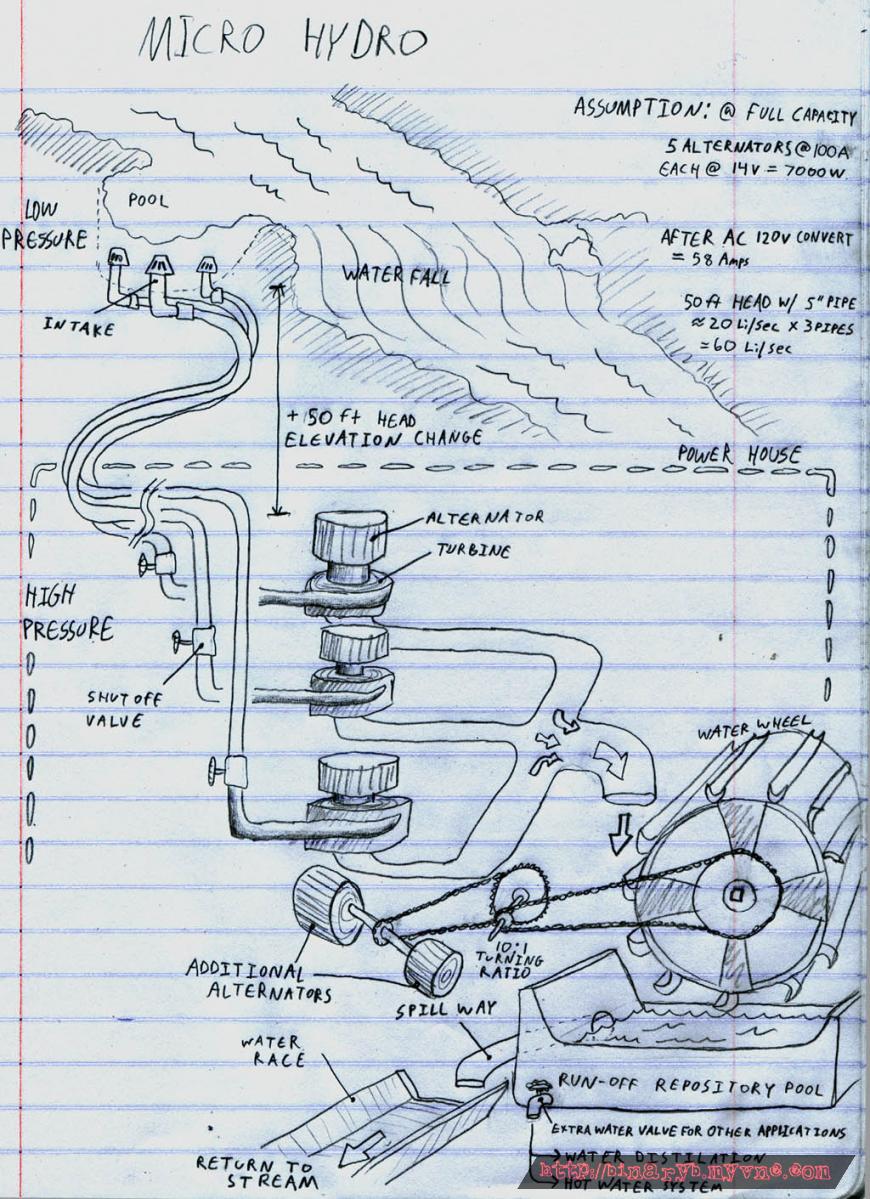 MICRO HYDRO
ASSUMPTION: @ FULL CAPACITY
5 ALTERNATORS @ 100A
EACH @ 14V = 7000W
POOL
LOW
PRESSURE
AFTER AC 120V CONVERT
= 58 Amps
WATER FALL
INTAKE
50 ft HEAD W/ 5" PIPE
≈ 20 Li/sec x 3 PIPES
= 60 Li/sec
+ 50 ft HEAD
ELEVATION CHANGE
POWER HOUSE
ALTERNATOR
TURBINE
HIGH
PRESSURE
SHUT OFF
VALVE
WATER WHEEL
10:1
TURNING
RATIO
ADDITIONAL
ALTERNATORS
SPILL WAY
WATER
RACE
RUN-OFF REPOSITORY POOL
EXTRA WATER VALVE FOR OTHER APPLICATIONS
→ WATER DISTILATION
http://binaryb.myvnc.com
→ HOT WATER SYSTEM
RETURN TO
STREAM